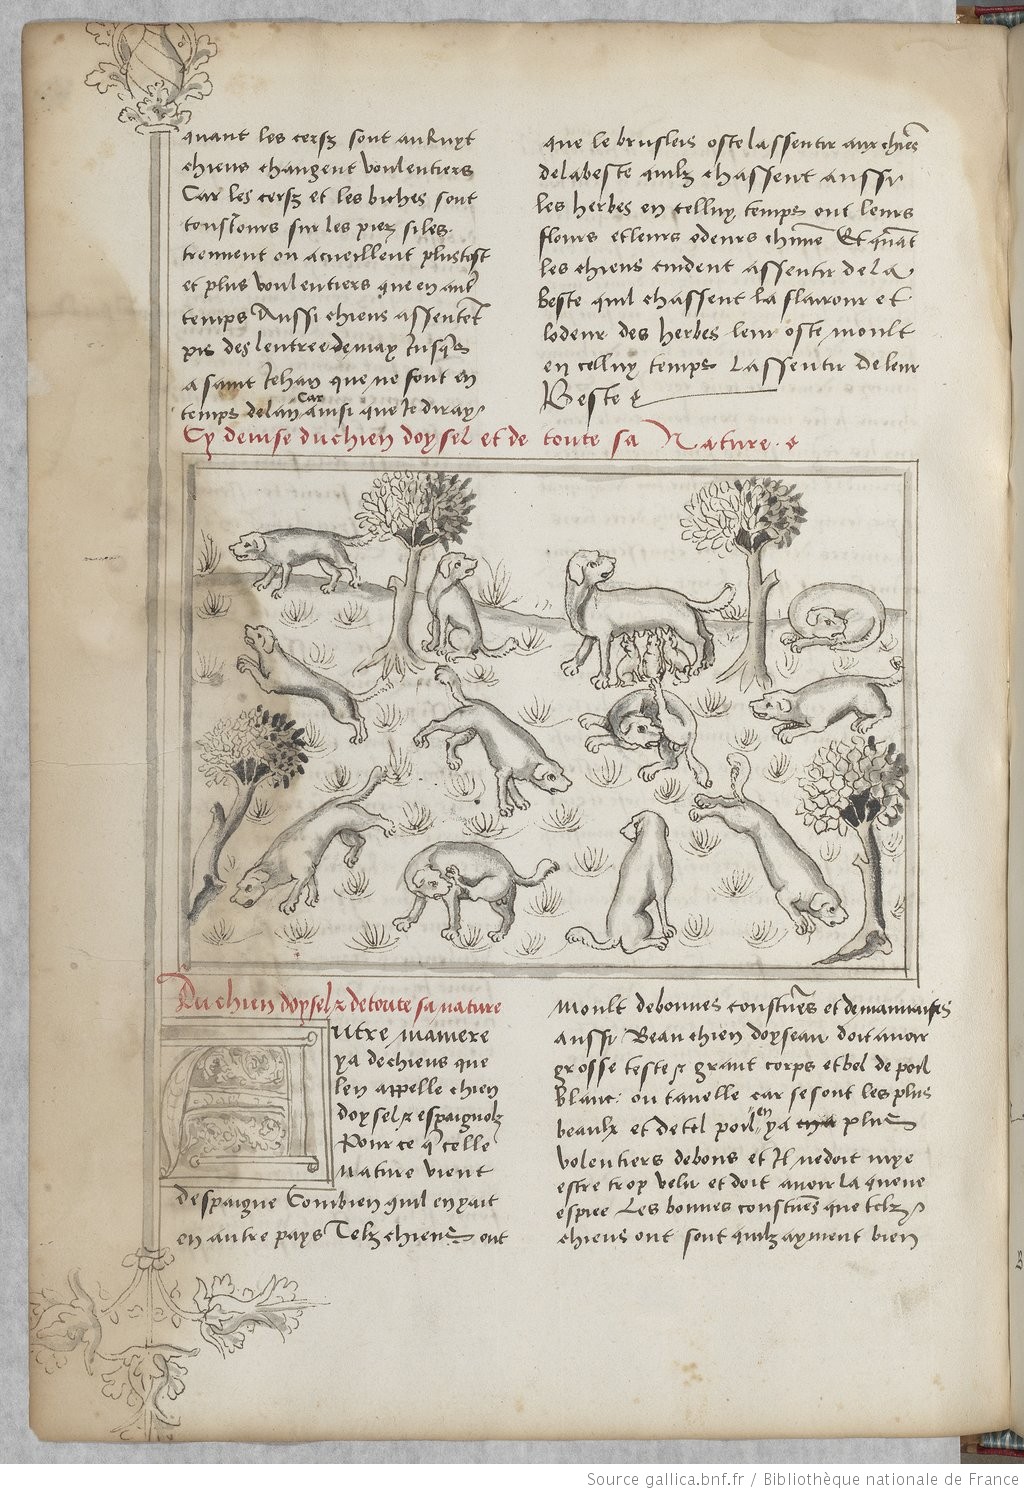 quant les cerfz sont au Ruyt
chiens changent voulentiers
Car les cerfz et les biches sont
tousiours sur les piez si les
treuuent ou acueillent plustost
et plus voulentiers que en autre
temps Aussi chiens assentent
pis des lentree de may Jusques
a saint Jehan que ne font en
temps de lan Car ainsi que Je diray
que le brusleis oste lassentir aux chiens
de la beste quilz chassent aussi
les herbes en celluy temps ont leurs
flours et leurs odeurs Et quant
les chiens cuident assentir de la
beste quil chassent la flairour et
lodeur des herbes leur oste moult
en celluy temps Lassentir de leur
Beste
Cy deuise du chien doysel et de toute sa Nature
Du chien doysel & de toute sa nature
Autre maniere
ya de chiens que
len appelle chien
doysel & espaignolz
Pour ce que celle
Nature vient
despaigne Combien quil en yait
en autre pays Telz chiens ont
moult de bonnes constumes et de mauuaises
aussi Beau chien doyseau doit auoir
grosse teste & grant corps et bel de poil
blanc ou tauelle car se sont les plus
beaulx et de tel poil en ya plus
volentiers de bons et Il ne doit mye
estre trop velu et doit auoir la queue
espiee Les bonnes constumes que telz
chiens ont sont quilz ayment bien
Source gallica.bnf.fr / Bibliothèque nationale de France